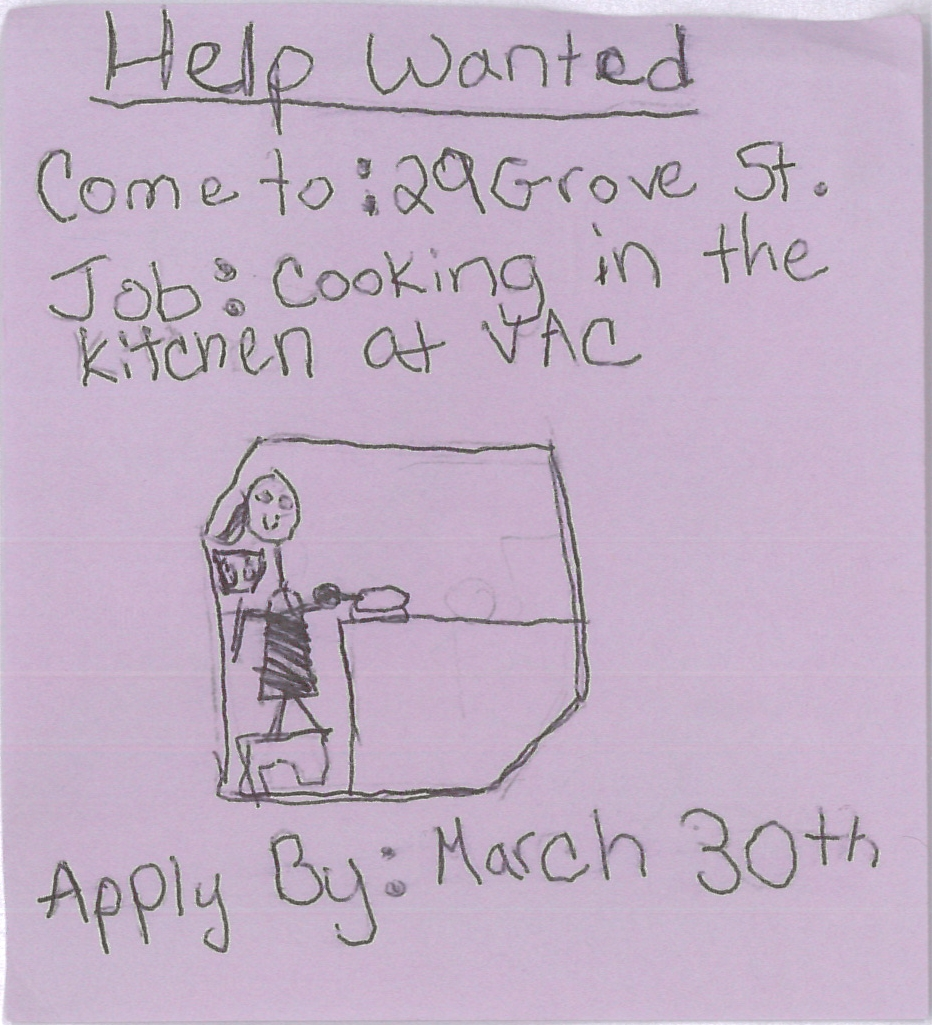 Help Wanted
Come to: 29 Grove St.
Job: Cooking in the
kitchen at VAC
Apply By: March 30th